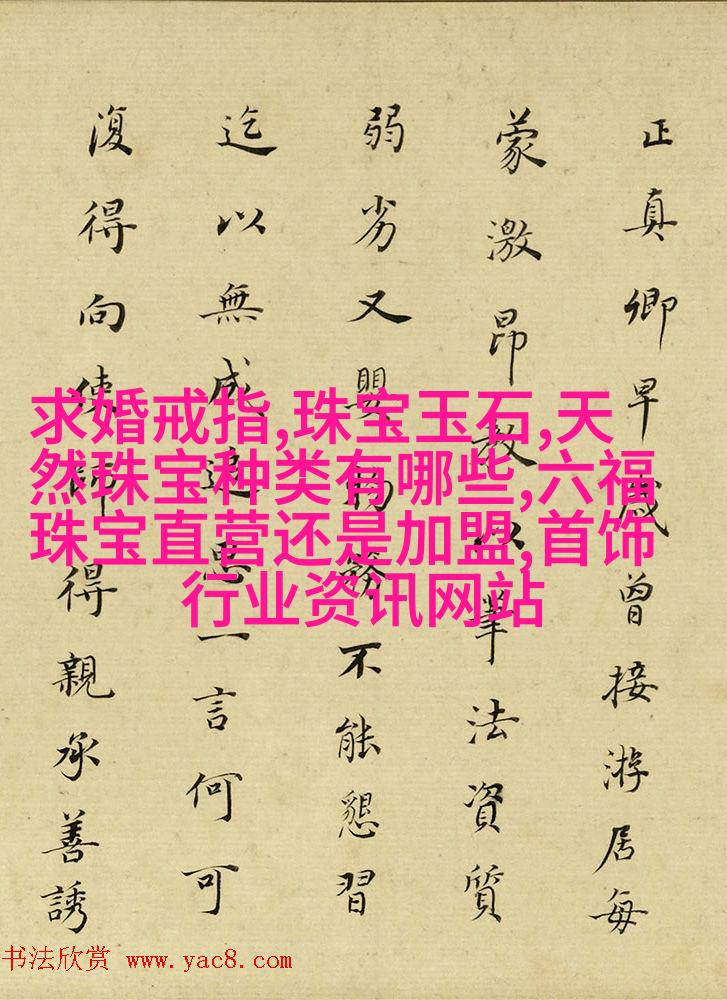 正真卿早歳曾接游居每
蒙激昂教以筆法資質
弱劣又嬰物務不能懇習
迄以無成追思一言何可
復得向使師得親承善誘
求婚戒指,珠宝玉石,天
然珠宝种类有哪些,六福
珠宝直营还是加盟,首饰
行业资讯网站
书法欣赏 www.yac8.com